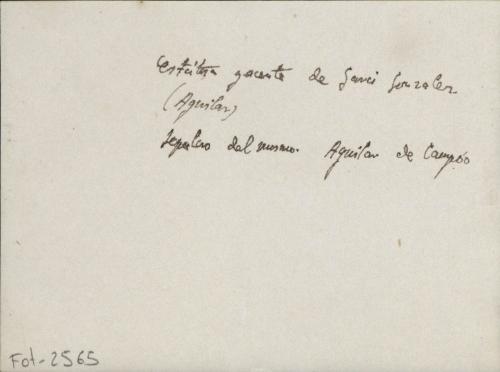 yacente de Garci Gonzalez
(Aguilar)
Sepulcro del mismo. Aguilar de Campóo
Fot-2565